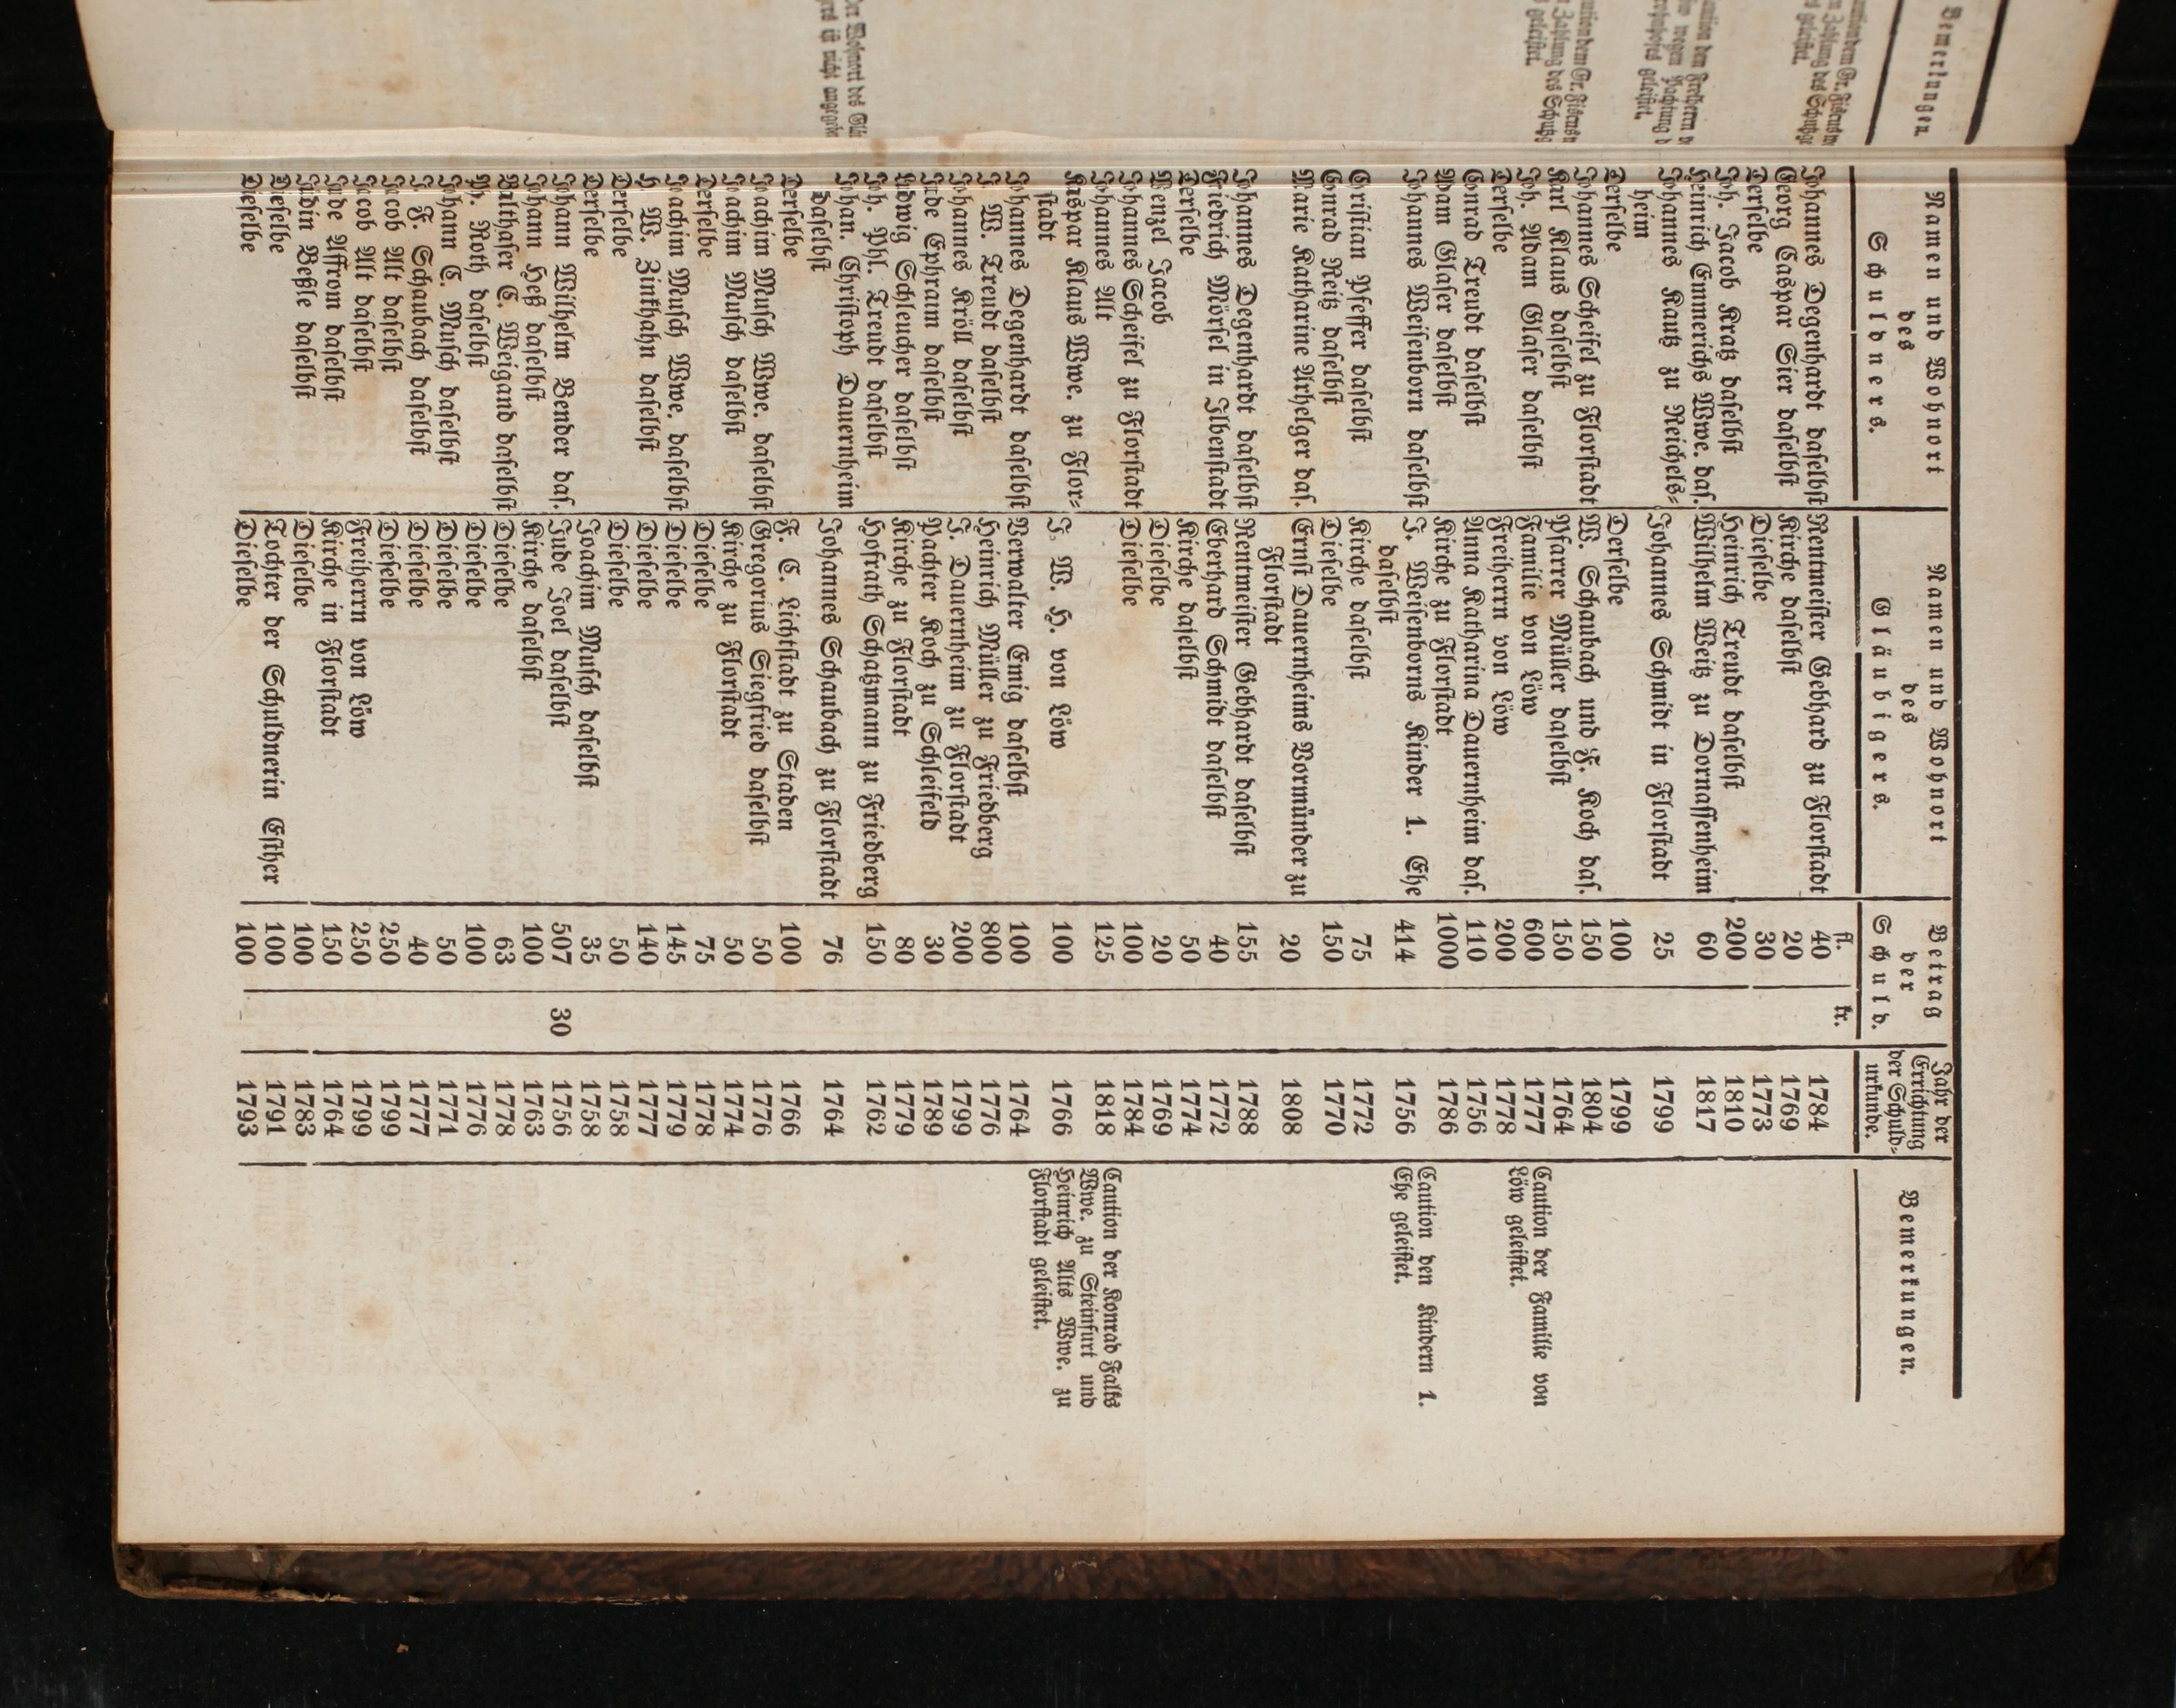 Bemerkungen.
Namen und Wohnort
des
Schuldners.
Namen und Wohnort
des
Gläubigers.
Betrag
der
Schuld.
Jahr der
Errichtung
der Schuld=
urkunde.
Bemerkungen.
fl. kr.
Johannes Degenhardt daselbst Rentmeister Gebhard zu Florstadt 40 1784
Georg Caspar Sier daselbst Kirche daselbst 20 1769
Derselbe Dieselbe 30 1773
Joh. Jacob Kratz daselbst Heinrich Treudt daselbst 200 1810
Heinrich Emmerichs Wwe. das. Wilhelm Weitz zu Dornassenheim 60 1817
Johannes Kautz zu Reichels=
heim Johannes Schmidt in Florstadt 25 1799
Derselbe Derselbe 100 1799
Johannes Scheifel zu Florstadt W. Schaubach und F. Koch das. 150 1804
Karl Klaus daselbst Pfarrer Müller daselbst 150 1764
Joh. Adam Glaser daselbst Familie von Löw 600 1777 Caution der Familie von
Derselbe Freiherrn von Löw 200 1778 Löw geleistet.
Conrad Treudt daselbst Anna Katharina Dauernheim das. 110 1756
Adam Glaser daselbst Kirche zu Florstadt 1000 1786
Johannes Weisenborn daselbst J. Weisenborns Kinder 1. Ehe 414 1756 Caution den Kindern 1.
daselbst Ehe geleistet.
Christian Pfeffer daselbst Kirche daselbst 75 1772
Conrad Reitz daselbst Dieselbe 150 1770
Marie Katharine Arhelger das. Ernst Dauernheims Vormünder zu 20 1808
Florstadt
Johannes Degenhardt daselbst Rentmeister Gebhardt daselbst 155 1788
Friedrich Mörsel in Ilbenstadt Eberhard Schmidt daselbst 40 1772
Derselbe Kirche daselbst 50 1774
Wenzel Jacob Dieselbe 20 1769
Johannes Scheifel zu Florstadt Dieselbe 100 1784
Johannes Alt 125 1818 Caution der Konrad Falks
Wwe. zu Steinfurt und
Heinrich Alts Wwe. zu
Florstadt geleistet.
Kaspar Klaus Wwe. zu Flor=
stadt J. W. H. von Löw 100 1766
Johannes Degenhardt daselbst Verwalter Emig daselbst 100 1764
J. W. Treudt daselbst Heinrich Müller zu Friedberg 800 1776
Johannes Kröll daselbst J. Dauernheim zu Florstadt 200 1799
Jude Ephraim daselbst Pachter Koch zu Schleifeld 30 1789
Ludwig Schleucher daselbst Kirche zu Florstadt 80 1779
Joh. Phl. Treudt daselbst Hofrath Schatzmann zu Friedberg 150 1762
Johan. Christoph Dauernheim
daselbst Johannes Schaubach zu Florstadt 76 1764
Derselbe F. C. Lichtstadt zu Staden 100 1766
Joachim Musch Wwe. daselbst Gregorius Siegfried daselbst 50 1776
Joachim Musch daselbst Kirche zu Florstadt 50 1774
Derselbe Dieselbe 75 1778
Joachim Musch Wwe. daselbst Dieselbe 145 1779
H. W. Zinkhahn daselbst Dieselbe 140 1777
Derselbe Dieselbe 50 1758
Derselbe Joachim Musch daselbst 35 1758
Johann Wilhelm Bender das. Jude Joel daselbst 507 30 1756
Johann Heß daselbst Kirche daselbst 100 1763
Balthaser C. Weigand daselbst Dieselbe 63 1778
Ph. Roth daselbst Dieselbe 100 1776
Johann C. Musch daselbst Dieselbe 50 1771
J. F. Schaubach daselbst Dieselbe 40 1777
Jacob Alt daselbst Dieselbe 250 1799
Jacob Alt daselbst Freiherrn von Löw 250 1799
Jude Affrom daselbst Kirche in Florstadt 150 1764
Jüdin Beßle daselbst Dieselbe 100 1783
Dieselbe Tochter der Schuldnerin Esther 100 1791
Dieselbe Dieselbe 100 1793